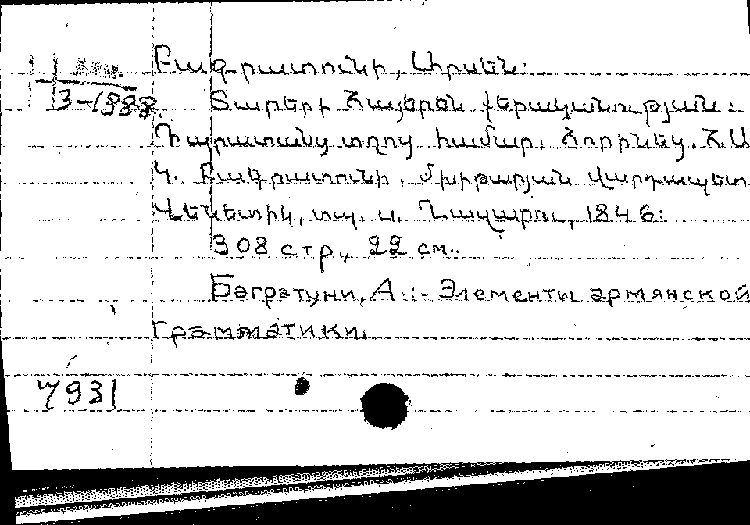 Բագրատունի, Արսեն:
3-1888. Տարերք հայերեն քերականության:
Դպրատանց տղոց համար, Հորինեց. Հ. Ա
Կ. Բագրատունի, Մխիթարյան վարդապետ
Վենետիկ, տպ. ս. Ղազարու, 1846:
308 стр., 22 см.
Багратуни, А.:- Элементы армянской
грамматики.
7931